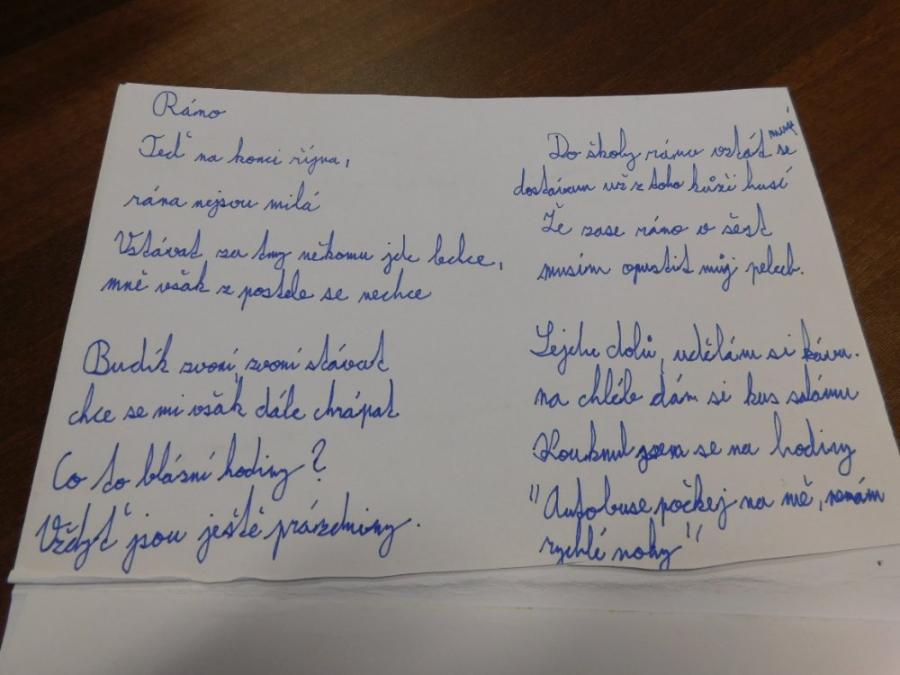 Ráno
Teď na konci října,
rána nejsou milá
Vstávat za tmy někomu jde lechce,
mně však z postele se nechce
Budík zvoní, zvoní stávat
chce se mi však dále chrápat
Co to blázní hodiny?
Vždyť jsou ještě prázdniny.
Do školy ráno vstát se musí
dostávam už z toho kůži husí
Že zase ráno v šest
musím opustit můj pelech.
Sejdu dolů, udělám si kávu.
na chléb dám si kus salámu
Kouknul jsem se na hodiny
"Autobuse počkej na mě, nemám
rychlé nohy"